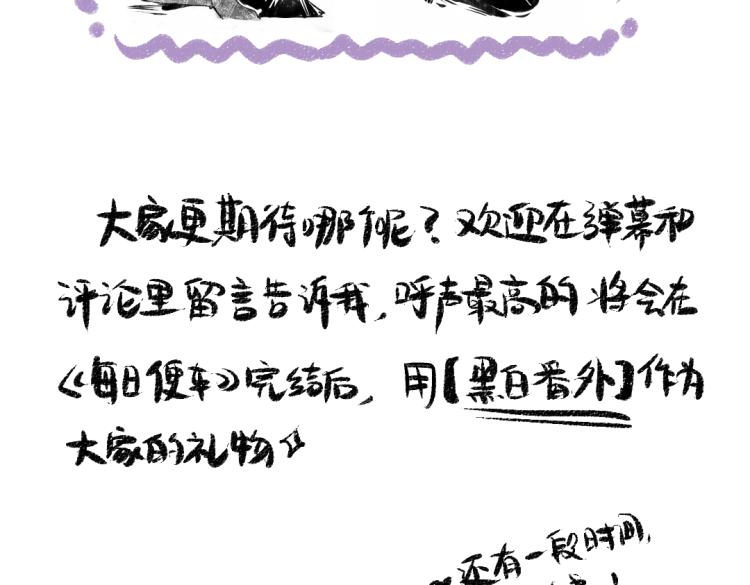 大家更期待哪个呢？欢迎在弹幕和
评论里留言告诉我，呼声最高的将会在
《每日便车》完结后，用【黑白番外】作为
大家的礼物
还有一段时间，